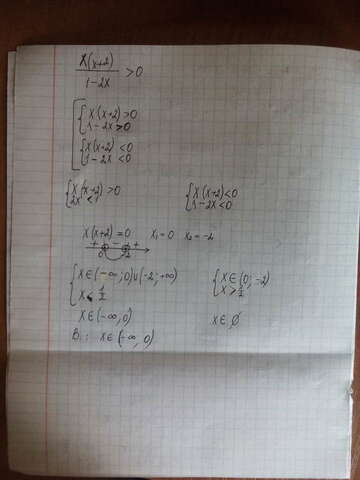 x(x+2)/1-2x >0
{x(x+2)>0
{1-2x>0
{x(x+2)<0
{1-2x<0
{x(x+2)>0 {x(x+2)<0
{2x<1 {1-2x<0
x(x+2)=0 x₁=0 x₂=-2
+ - +
0 -2
{x∈(-∞;0)∪(-2;+∞) {x∈(0;-2)
{x<1/2 {x>1/2
x∈(-∞,0) x∈∅
В.: x∈(-∞,0)